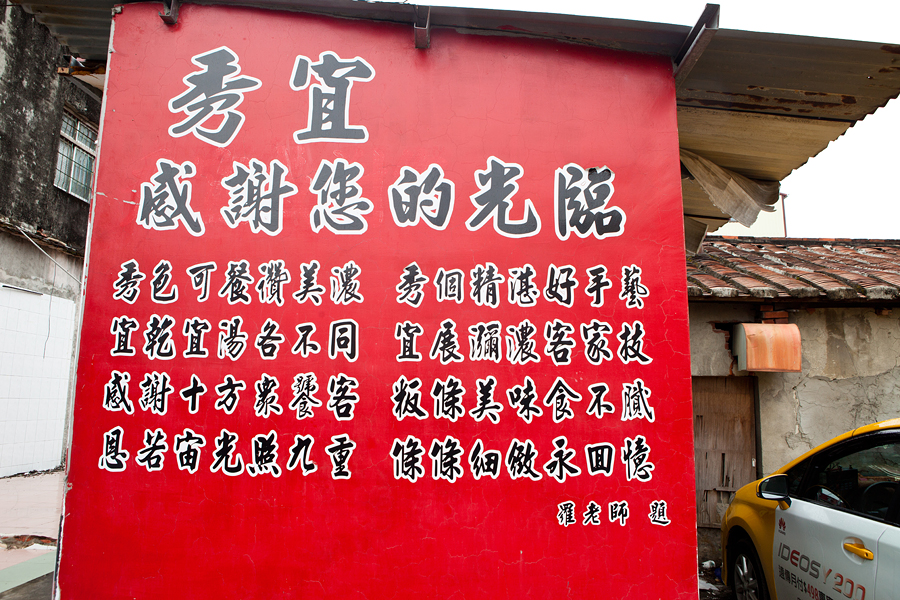 秀宜
感謝您的光臨
秀色可餐讚美濃
宜乾宜湯各不同
感謝十方眾饕客
恩若宙光照九重
秀個精湛好手藝
宜展瀰濃客家技
板條美味食不膩
條條細緻永回憶
羅老師 題
IDEOS